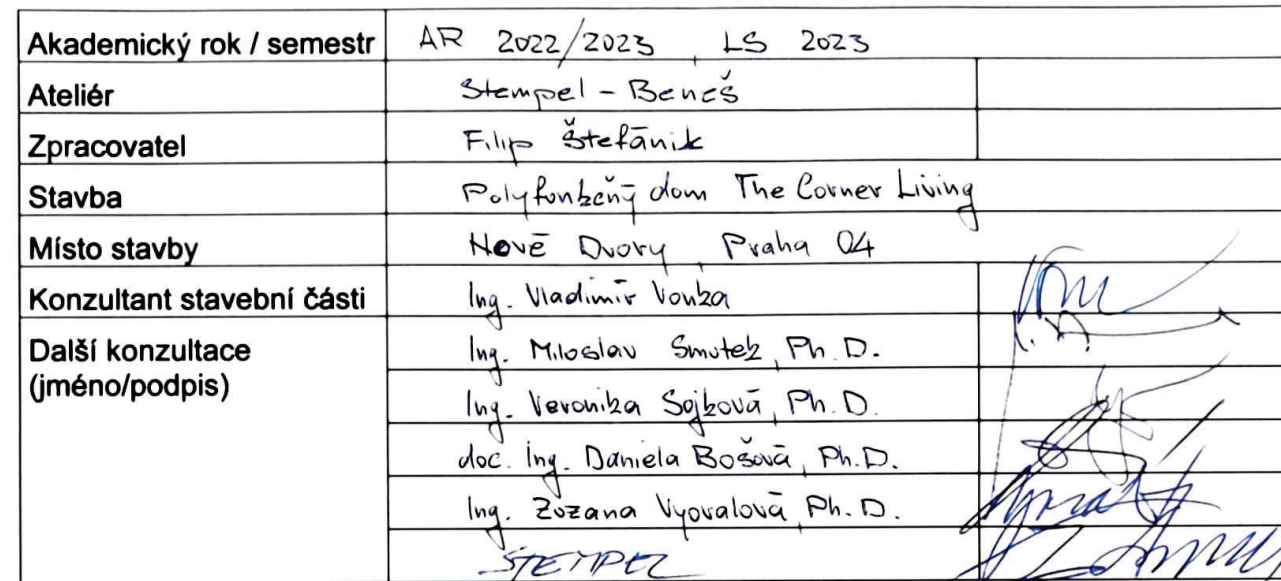 Akademický rok / semestr AR 2022/2023, LS 2023
Ateliér Stempel - Beneš
Zpracovatel Filip Štefánik
Stavba Polyfunkčný dom The Corner Living
Místo stavby Nové Dvory, Praha 04
Konzultant stavební části Ing. Vladimír Vonka
Další konzultace Ing. Miloslav Smutek, Ph.D.
(jméno/podpis)
Ing. Veronika Sojková, Ph.D.
doc. Ing. Daniela Bošová, Ph.D.
Ing. Zuzana Vyoralová, Ph.D.
ŠTEMPEL